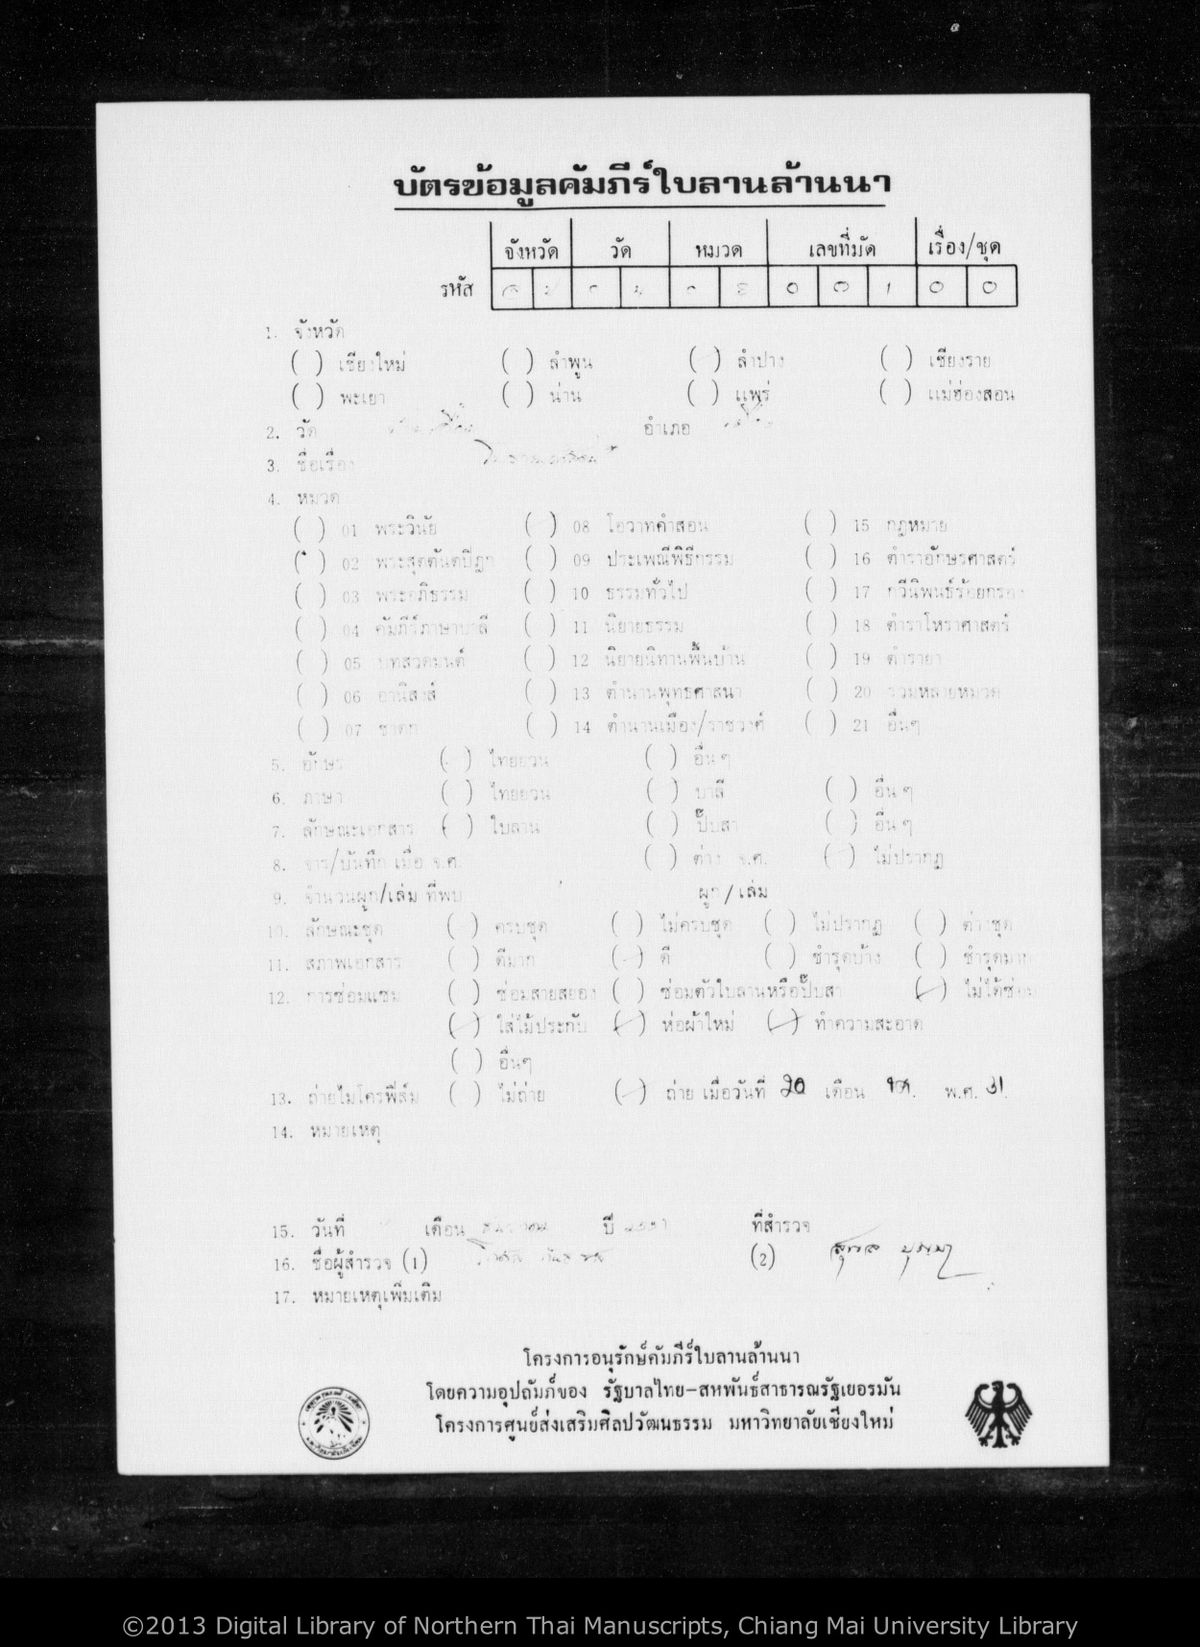 บัตรข้อมูลคัมภีร์ใบลานล้านนา
จังหวัด วัด หมวด เลขที่มัด เรื่อง/ชุด
รหัส 0 0 1 0 0
1. จังหวัด
( ) เชียงใหม่ ( ) ลำพูน ( ) ลำปาง ( ) เชียงราย
( ) พะเยา ( ) น่าน ( ) แพร่ ( ) แม่ฮ่องสอน
2. วัด อำเภอ
3. ชื่อเรื่อง
4. หมวด
( ) 01 พระวินัย ( ) 08 โอวาทคำสอน ( ) 15 กฎหมาย
( ) 02 พระสุตตันตปิฎก ( ) 09 ประเพณีพิธีกรรม ( ) 16 ตำราอักษรศาสตร์
( ) 03 พระอภิธรรม ( ) 10 ธรรมทั่วไป ( ) 17 กวีนิพนธ์ร้อยกรอง
( ) 04 คัมภีร์ภาษาบาลี ( ) 11 นิยายธรรม ( ) 18 ตำราโหราศาสตร์
( ) 05 บทสวดมนต์ ( ) 12 นิยายนิทานพื้นบ้าน ( ) 19 ตำรายา
( ) 06 อานิสงส์ ( ) 13 ตำนานพุทธศาสนา ( ) 20 รวมหลายหมวด
( ) 07 ชาดก ( ) 14 ตำนานเมือง/ราชวงศ์ ( ) 21 อื่นๆ
5. อักษร ( ) ไทยยวน ( ) อื่นๆ
6. ภาษา ( ) ไทยยวน ( ) บาลี ( ) อื่นๆ
7. ลักษณะเอกสาร ( ) ใบลาน ( ) ปั๊บสา ( ) อื่นๆ
8. จาร/บันทึก เมื่อ จ.ศ. ( ) ต่าง จ.ศ. ( ) ไม่ปรากฏ
9. จำนวนผูก/เล่ม ที่พบ ผูก/เล่ม
10. ลักษณะชุด ( ) ครบชุด ( ) ไม่ครบชุด ( ) ไม่ปรากฏ ( ) ต่างชุด
11. สภาพเอกสาร ( ) ดีมาก (✓) ดี ( ) ชำรุดบ้าง ( ) ชำรุดมาก
12. การซ่อมแซม ( ) ซ่อมสายสยอง ( ) ซ่อมตัวใบลานหรือปั๊บสา (✓) ไม่ได้ซ่อม
(✓) ใส่ไม้ประกับ (✓) ห่อผ้าใหม่ (✓) ทำความสะอาด
( ) อื่นๆ
13. ถ่ายไมโครฟิล์ม ( ) ไม่ถ่าย (✓) ถ่าย เมื่อวันที่ 20 เดือน พ.ศ. 31
14. หมายเหตุ
15. วันที่ เดือน ปี ที่สำรวจ
16. ชื่อผู้สำรวจ (1) (2)
17. หมายเหตุเพิ่มเติม
โครงการอนุรักษ์คัมภีร์ใบลานล้านนา
โดยความอุปถัมภ์ของ รัฐบาลไทย-สหพันธ์สาธารณรัฐเยอรมัน
โครงการศูนย์ส่งเสริมศิลปวัฒนธรรม มหาวิทยาลัยเชียงใหม่
©2013 Digital Library of Northern Thai Manuscripts, Chiang Mai University Library